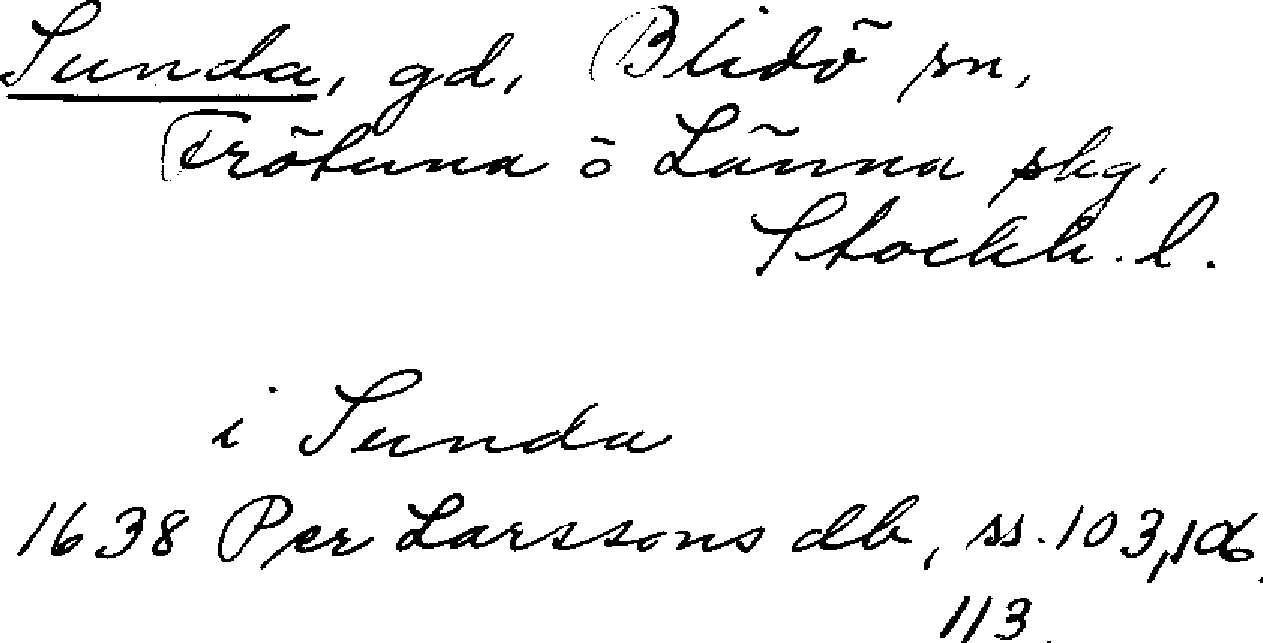 Sunda, gd, Blidö sn,
Frötuna o Länna skg,
Stockh. l.
i Sunda
1638 Per Larssons db, ss. 103, 106,
113.